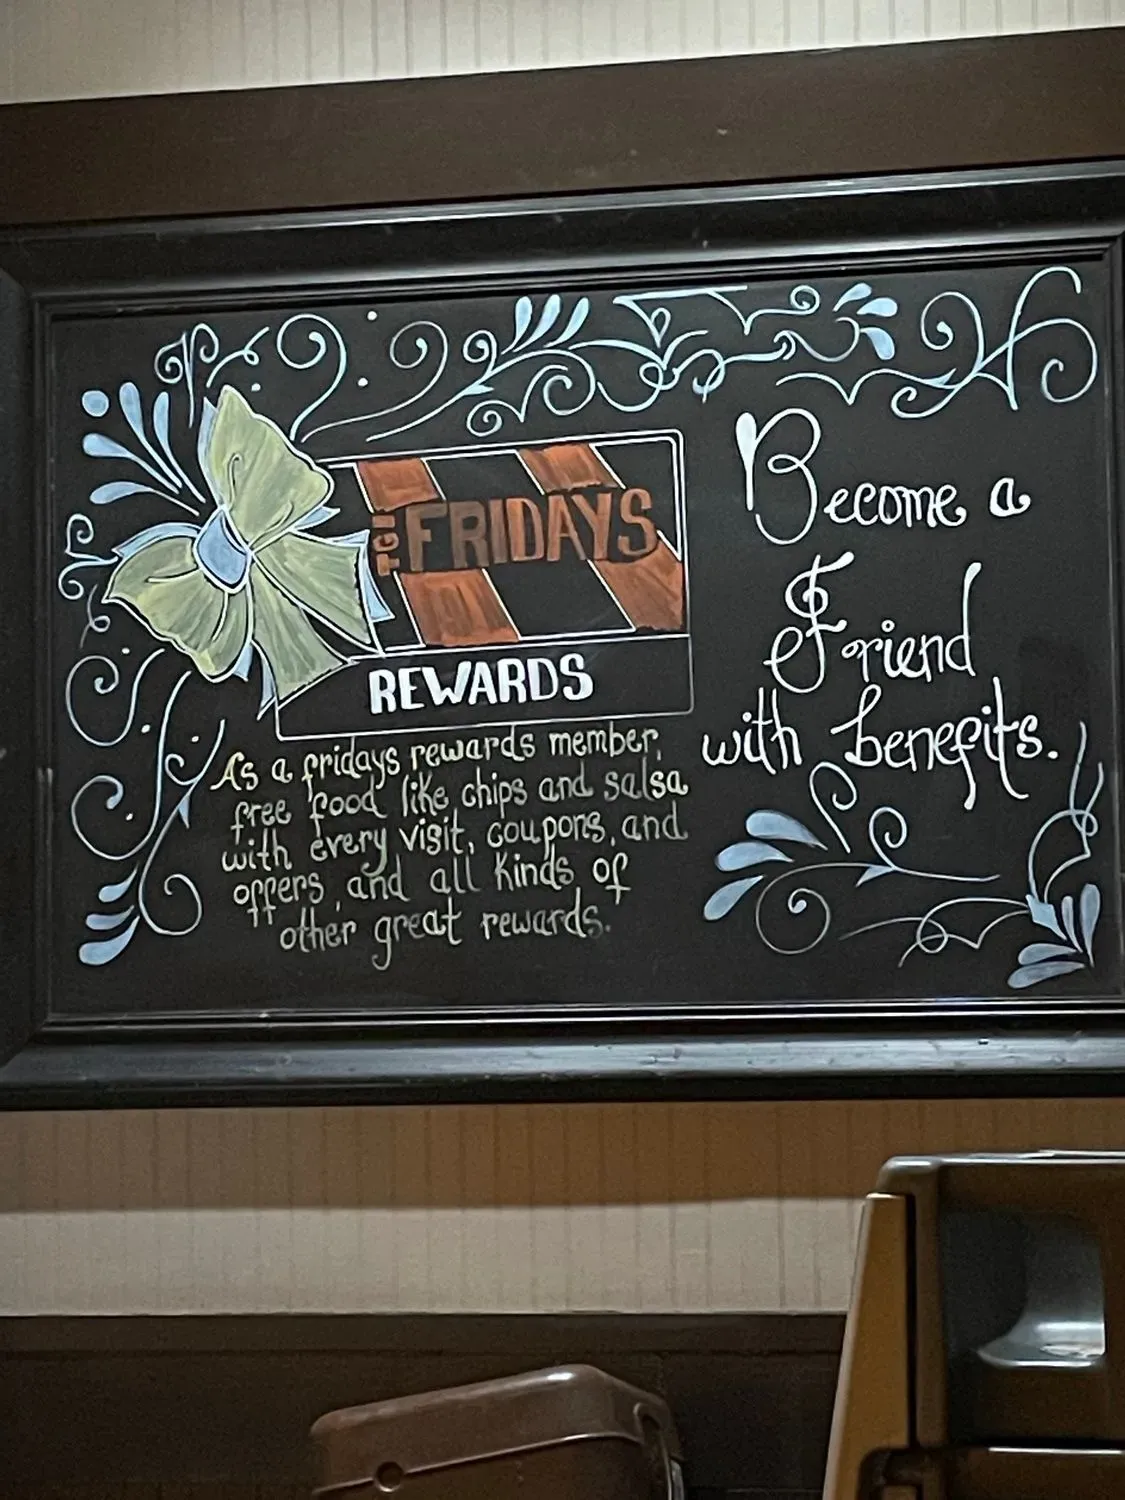 TGI FRIDAYS
REWARDS
As a fridays rewards member,
free food like chips and salsa
with every visit, coupons, and
offers, and all kinds of
other great rewards.
Become a
Friend
with benefits.